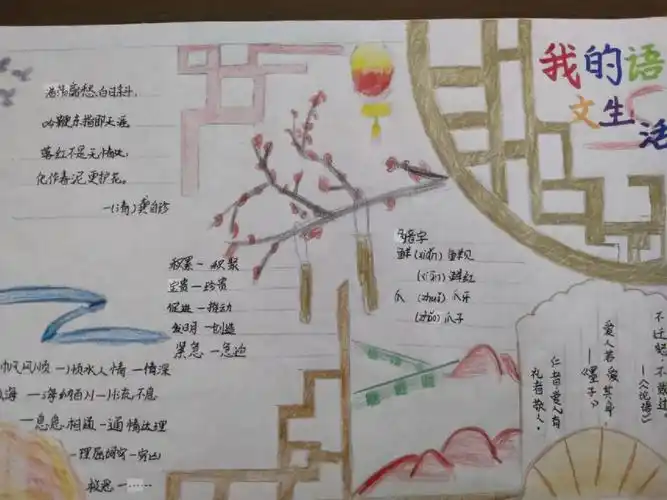 我的语
文生活
浩荡离愁白日斜,
吟鞭东指即天涯。
落红不是无情物,
化作春泥更护花。
—(清)龚自珍
积累—积聚
宝贵—珍贵
促进—推动
发明—创造
紧急—急迫
多音字
鲜(xiǎn)鲜见
(xiān)鲜红
爪(zhuǎ)爪子
帆风顺—顺水人情—情深
海—海纳百川—川流不息
—息息相通—通情达理
—理屈词穷—穷凶
极恶—……
不迁怒,不贰过。
——《论语》
爱人若爱其身。
——《墨子》
仁者爱人,有
礼者敬人。